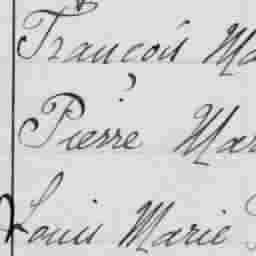 François Ma
Pierre Mar
Louis Marie